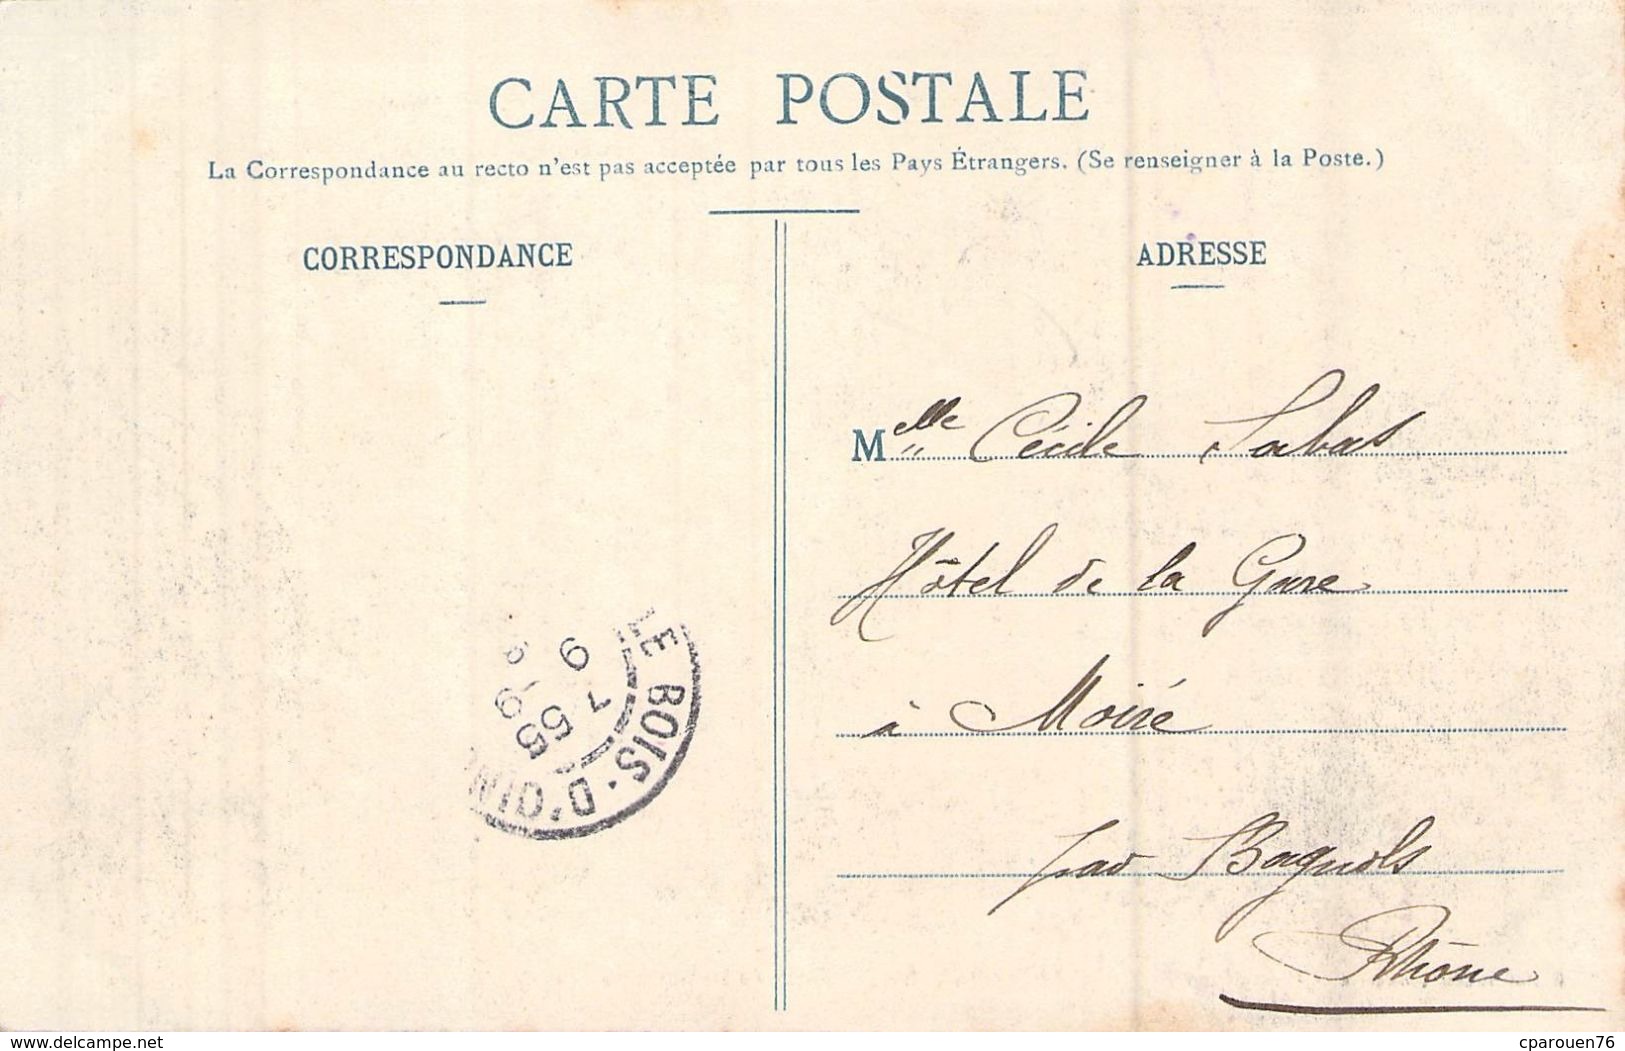 CARTE POSTALE
La Correspondance au recto n'est pas acceptée par tous les Pays Étrangers. (Se renseigner à la Poste.)
CORRESPONDANCE
ADRESSE
Melle Cécile Sabas
Hôtel de la Gare
à Moiré
par Bagnols
Rhône
LE BOIS-D'OIN
delcampe.net
cparouen76